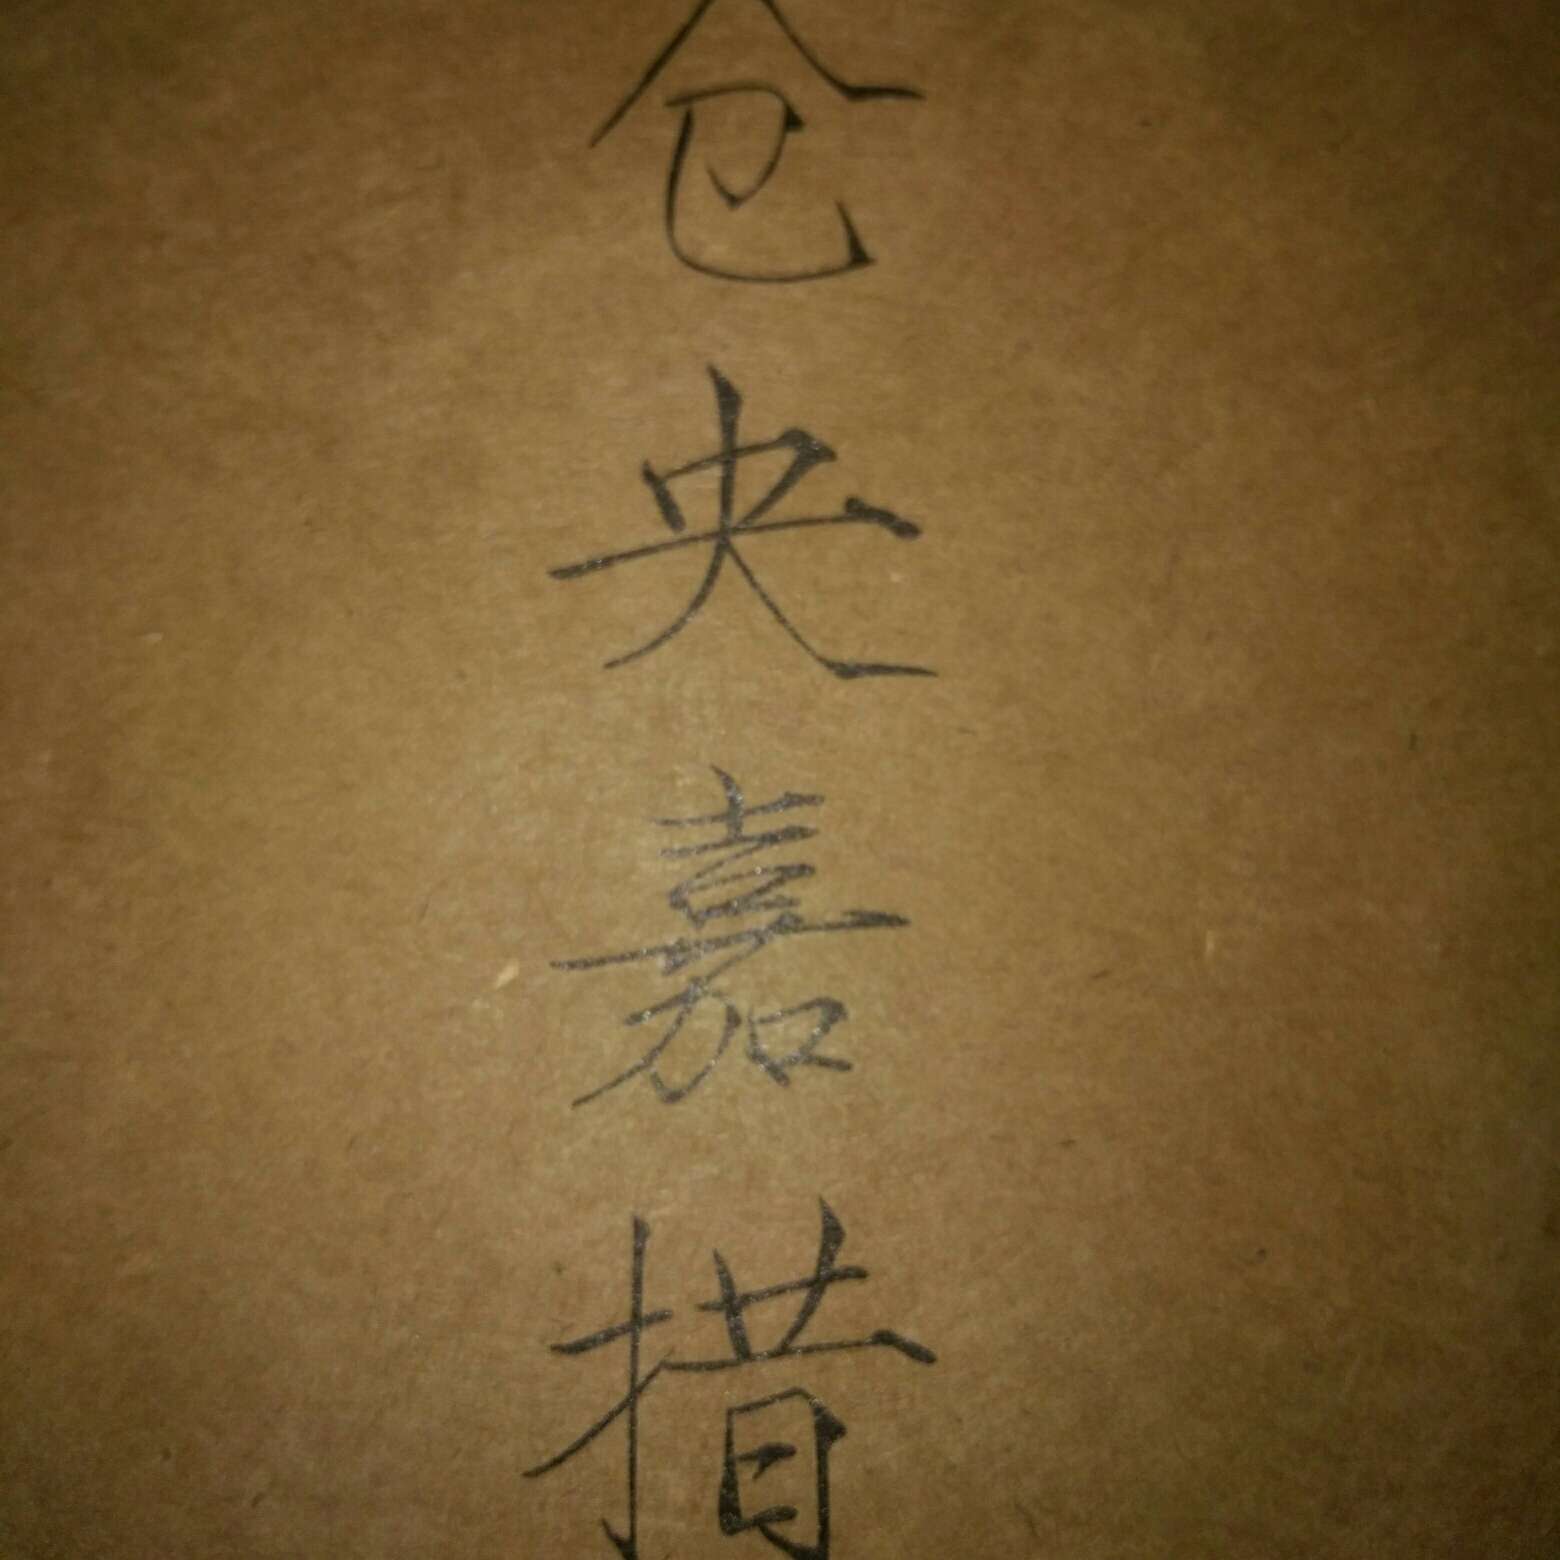 仓央嘉措